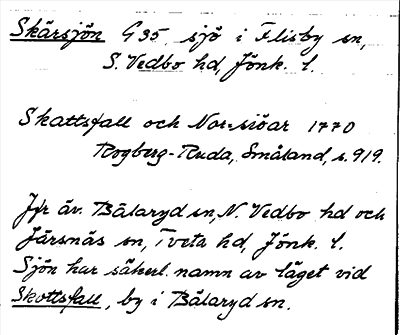 Skärsjön G35 sjö i Flisby sn,
S. Vedbo hd, Jönk. l.
Skattsfall och Nor-siöar 1770
Rogberg-Ruda, Småland, s. 919.
Jfr äv. Bälaryd sn, N. Vedbo hd och
Järsnäs sn, Tveta hd, Jönk. l.
Sjön har säkerl. namn av läget vid
Skottsfall, by i Bälaryd sn.